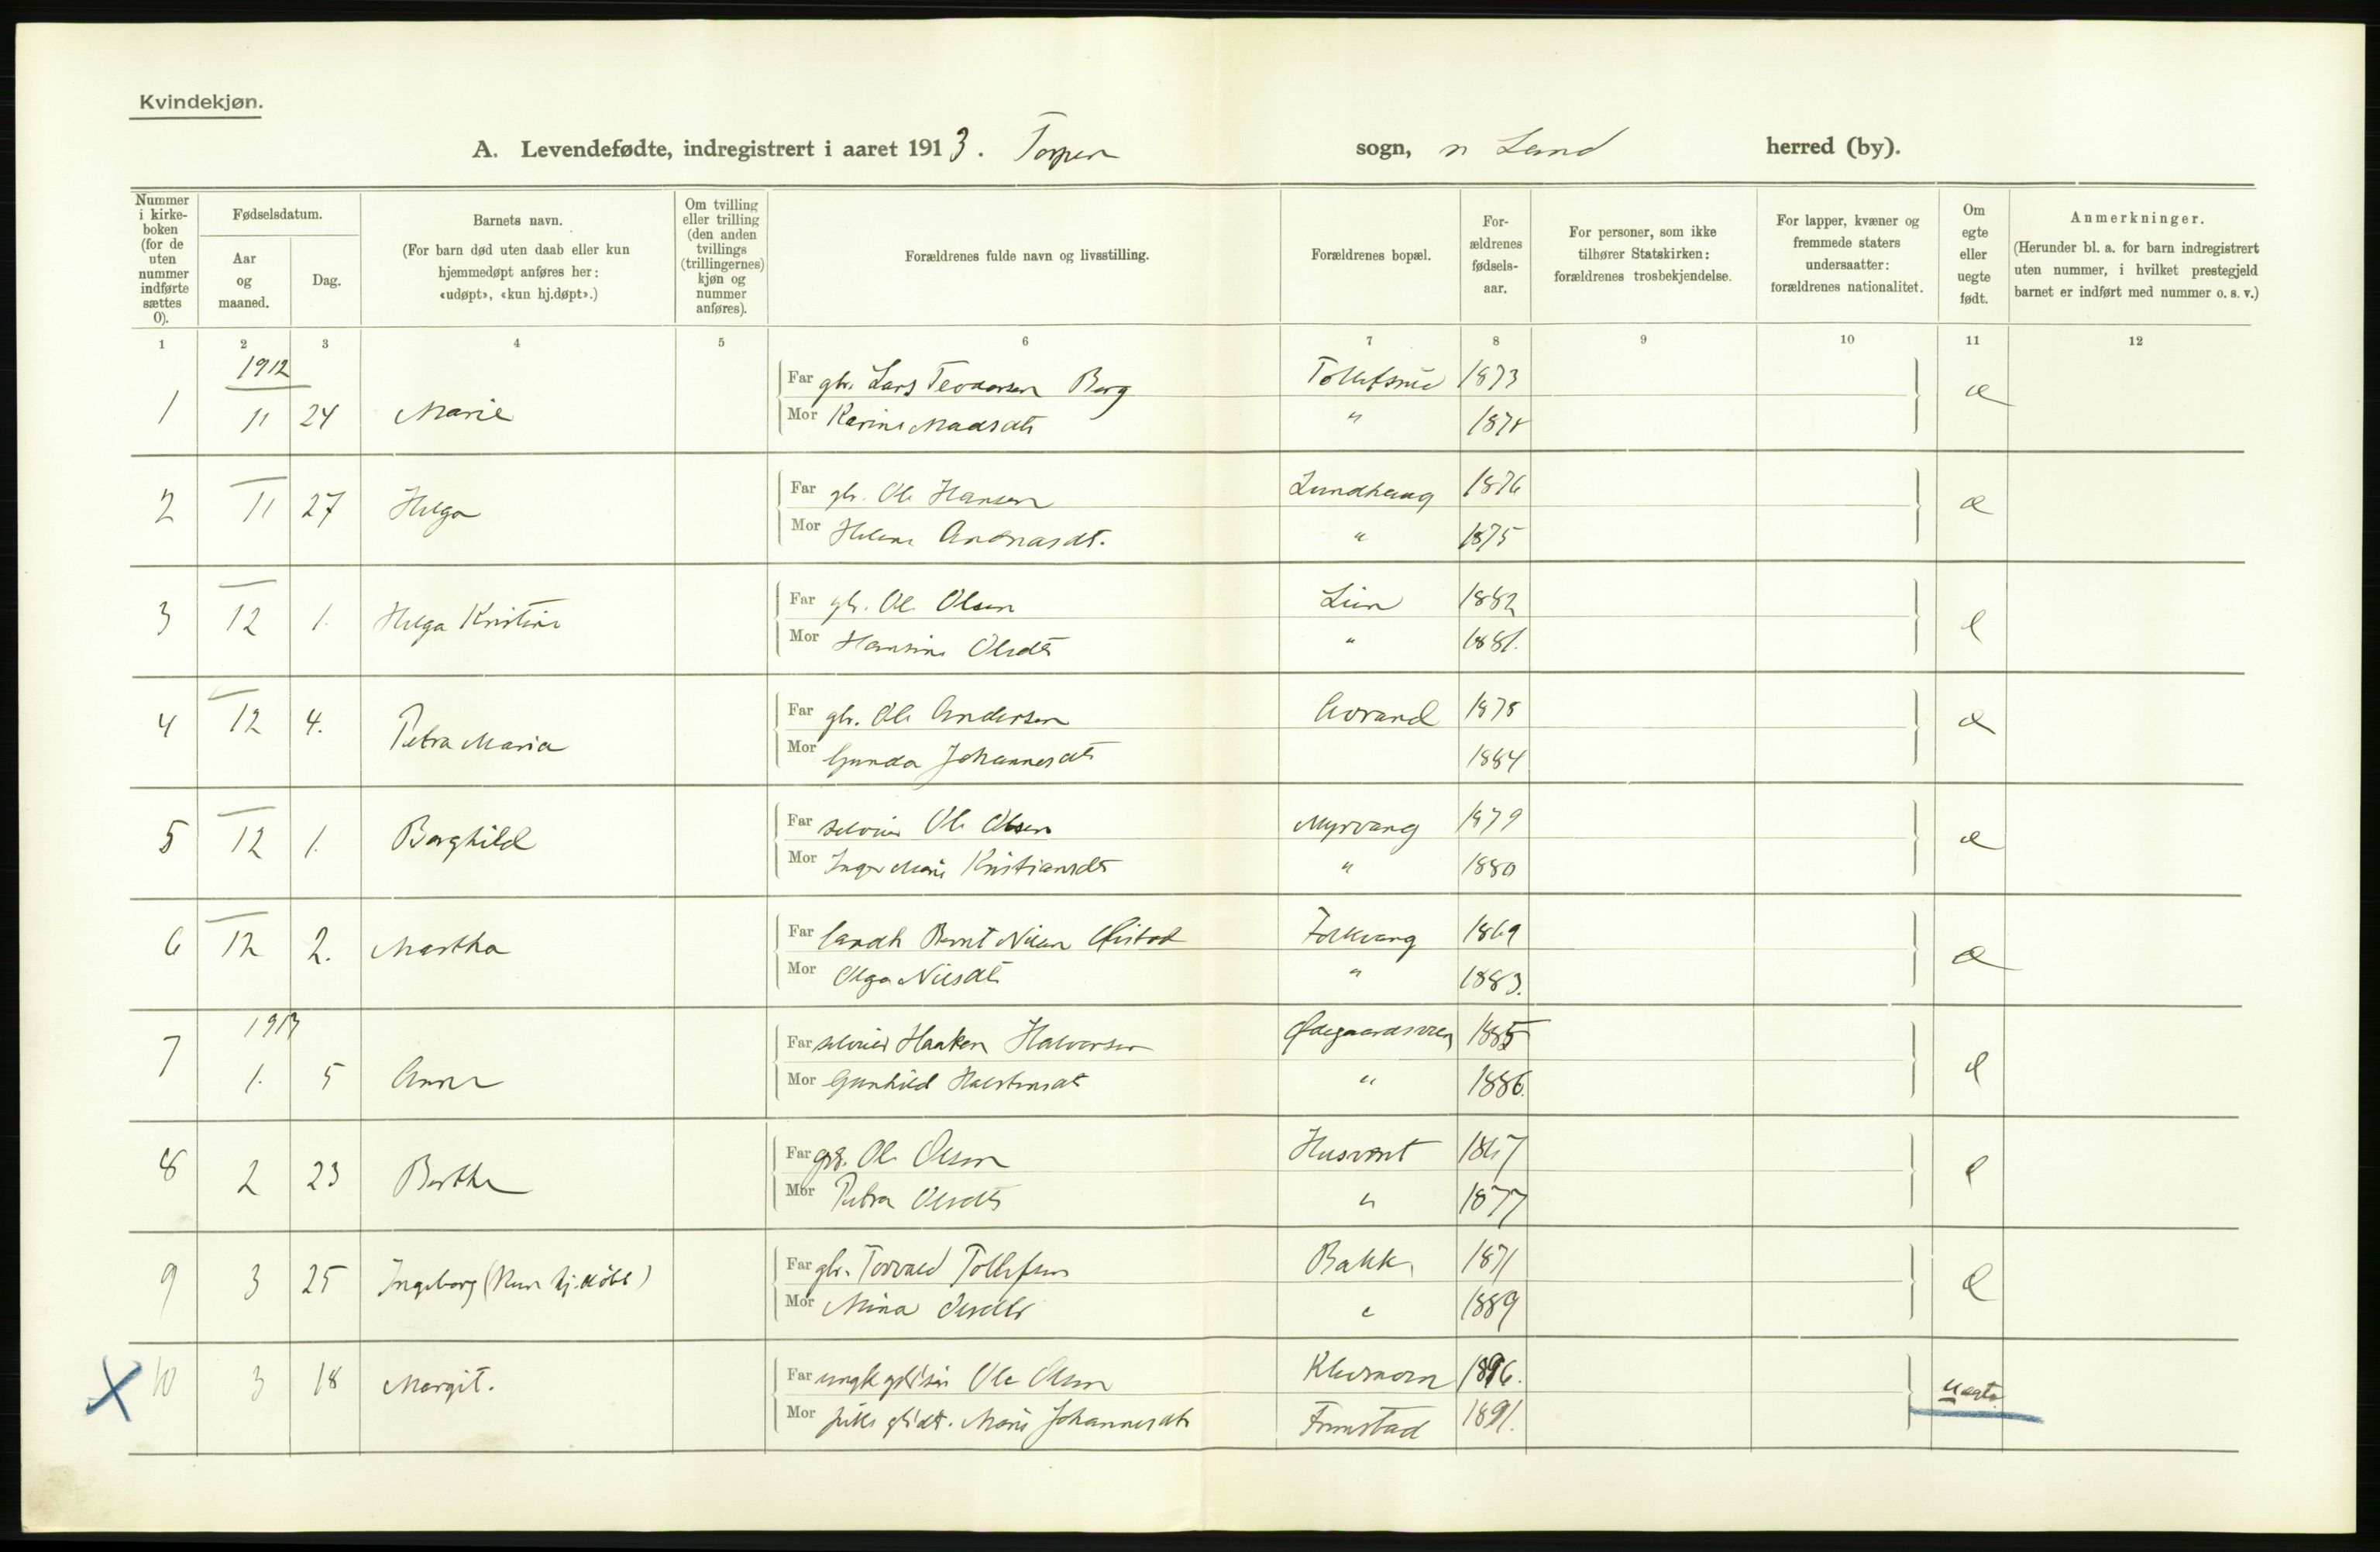 Kvindekjøn.
A. Levendefødte, indregistrert i aaret 1913. Torpen sogn, n Land herred (by).
Nummer i kirke- boken (for de uten nummer indførte sættes 0).
Fødselsdatum.
Aar og maaned.
Dag.
Barnets navn.
(For barn død uten daab eller kun hjemmedøpt anføres her: «udøpt», «kun hj.døpt».)
Om tvilling eller trilling (den anden tvillings (trillingernes) kjøn og nummer anføres).
Forældrenes fulde navn og livsstilling.
Forældrenes bopæl.
For- ældrenes fødsels- aar.
For personer, som ikke tilhører Statskirken: forældrenes trosbekjendelse.
For lapper, kvæner og fremmede staters undersaatter: forældrenes nationalitet.
Om egte eller uegte født.
Anmerkninger.
(Herunder bl. a. for barn indregistrert uten nummer, i hvilket prestegjeld barnet er indført med nummer o. s. v.)
1 2 3 4 5 6 7 8 9 10 11 12
1912
1 11 24 Marie Far gbr. Lars Teodorsen Berg Tollefsrud 1873 e
Mor Karine Madsdtr " 1878
2 11 27 Helga Far gbr. Ole Hansen Lundhaug 1876 e
Mor Helene Andreasdt. " 1875
3 12 1. Helga Kristine Far gbr. Ole Olsen Lien 1882 e
Mor Hansine Olsdtr " 1881.
4 12 4. Petra Maria Far gbr. Ole Andersen 1875 e
Mor Gunda Johannesdtr 1884
5 12 1. Borghild Far selveier Ole Olsen Myrvang 1879 e
Mor Inger Marie Kristiansdtr " 1880
6 12 2. Martha Far landh Bernt Nilsen Øistad Folkvang 1869 e
Mor Olga Nilsdtr " 1883.
1913
7 1. 5 Anna Far selveier Haaken Halvorsen Ødegaardsvien 1885 e
Mor Gunhild Halstensdt " 1886.
8 2 23 Berthe Far Ole Olsen Husvært 1867 e
Mor Petra Olsdtr " 1877
9 3 25 Ingeborg (Kun hj.døbt) Far gbr. Torvald Tollefsen Bakke 1871 e
Mor Mina Olsdtr " 1889
10 3 18 Margit. Far ungk Ole Olsen 1896. uegte
Mor pike Marie Johannesdtr Fremstad 1891.